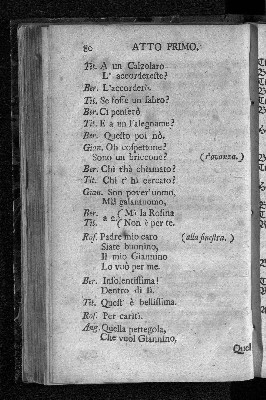 80 ATTO PRIMO.
Tit. A un Calzolaro
L' accordereste?
Ber. L'accorderò.
Tit. Se fosse un fabro?
Ber. Ci penserò
Tit. E a un falegname?
Ber. Questo poi nò.
Gian. Oh cospettone?
Sono un briccone? (s'avanza.)
Ber. Chi t'hà chiamato?
Tit. Chi t' hà cercato?
Gian. Son pover'uomo,
Mà galantuomo,
Ber.
Tit. a 2. (Mà la Rosina
(Non è per te.
Ros. Padre mio caro (alla finestra.)
Siate buonino,
Il mio Giannino
Lo vuò per me.
Ber. Insolentissima!
Dentro di lì.
Tit. Quest' è bellissima.
Ros. Per carità.
Ang. Quella pettegola,
Che vuol Giannino,
Quel